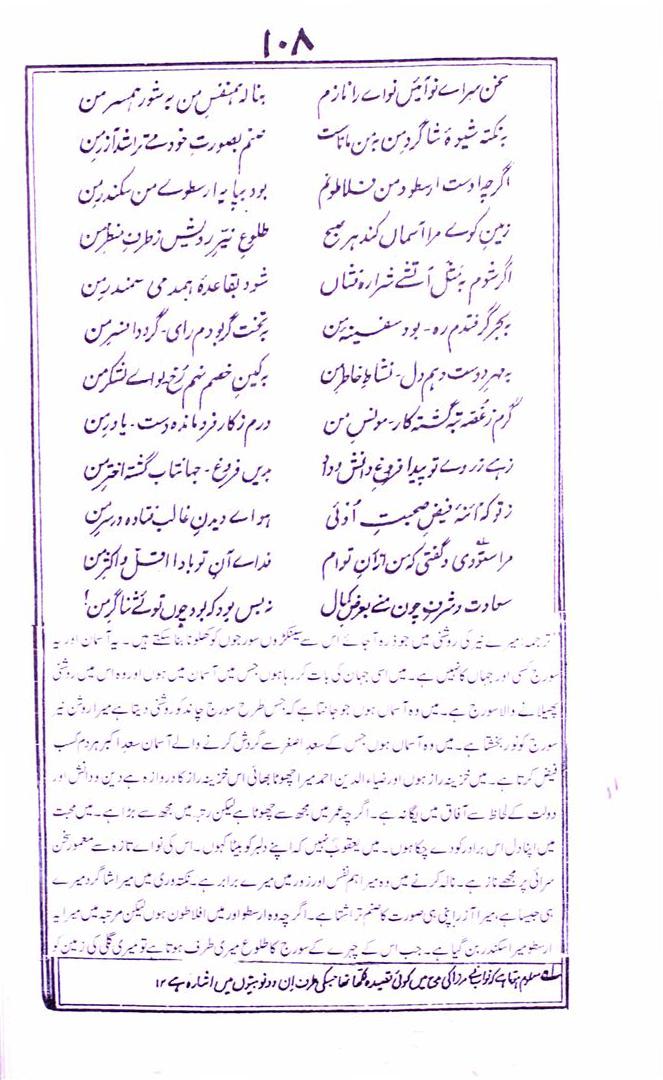 ۱۰۸
سخن سراے نو آئیں نواے را نازم بنالہ ہمنفسِ من بہ شور ہمسرِ من
بہ نکتہ شیوۂ شاگردِ من بہ من ماناست صنم بصورتِ خود مے تراشد آزرِ من
اگرچہ اوست ارسطو و من فلاطونم بود بپایہ ارسطوے من سکندرِ من
زمینِ کوے مرا آسماں کند ہر صبح طلوعِ نیّرِ رویش ز طرفِ منظرِ من
اگر شوم بہ مثل آتشے شرارہ فشاں شود بقاعدۂ ہمدمی سمندرِ من
بہ بحر گر فتدم رہ - بود سفینۂ من بہ تخت گر بودم راے - گردد افسرِ من
بہ مہرِ دوست دہم دل - نشاطِ خاطرِ من بہ کینِ خصم نہم رخ - لواے لشکرِ من
گرم ز غصّہ تبہ گشتہ کار - مونسِ من ورم ز کار فرو ماندہ دست - یاورِ من
زہے ز روے تو پیدا فروغِ دانش و داد بدیں فروغ - جہانتاب گشتہ اخترِ من
ز تو کہ آئنۂ فیضِ صحبتِ اوئی ہواے دیدنِ غالب فتادہ در سرِ من
مرا ستودی و گفتی کہ من ازانِ توام فداے آنِ تو بادا اقلّ و اکثرِ من
سعادت و شرفِ چون منے بعرضِ کمال ز بس بود کہ بود چوں توئے ثناگرِ من!
ترجمہ، میرے نیر کی روشنی میں جو ذرہ آ جائے اس سے سینکڑوں سورجوں کو کھلونا بنا سکتے ہیں۔ یہ آسمان اور یہ
سورج کسی اور جہاں کا نہیں ہے۔ میں اسی جہان کی بات کر رہا ہوں جس میں آسمان میں ہوں اور وہ اس میں روشنی
پھیلانے والا سورج ہے۔ میں وہ آسماں ہوں جو جانتا ہے کہ جس طرح سورج چاند کو روشنی دیتا ہے میرا روشن نیر
سورج کو نور بخشتا ہے۔ میں وہ آسماں ہوں جس کے سعد اصغر سے گردش کرنے والے آسمان سعد اکبر ہر دم کسب
فیض کرتا ہے۔ میں خزینہ راز ہوں اور ضیاء الدین احمد میرا چھوٹا بھائی اس خزینہ راز کا دروازہ ہے دین و دانش اور
دولت کے لحاظ سے آفاق میں یگانہ ہے۔ اگرچہ عمر میں مجھ سے چھوٹا ہے لیکن رتبہ میں مجھ سے بڑا ہے۔ میں محبت
میں اپنا دل اس برادر کو دے چکا ہوں۔ میں یعقوب نہیں کہ اپنے دلبر کو بیٹا کہوں۔ اس کی نواے تازہ سے معمور سخن
سرائی پر مجھے ناز ہے۔ نالہ کرنے میں وہ میرا ہم نفس اور زور میں میرے برابر ہے۔ نکتہ وری میں میرا شاگرد میرے
ہی جیسا ہے، میرا آزر اپنی ہی صورت کا صنم تراشتا ہے۔ اگرچہ وہ ارسطو اور میں افلاطون ہوں لیکن مرتبہ میں میرا یہ
ارسطو میرا سکندر بن گیا ہے۔ جب اس کے چہرے کے سورج کا طلوع میری طرف ہوتا ہے تو میری گلی کی زمین کو
لہ معلوم ہوتا ہے کہ نواب نے مرزا کی مدح میں کوئی قصیدہ لکھا تھا جسکی طرف اِن دونوں بیتوں میں اشارہ ہے ۱۲